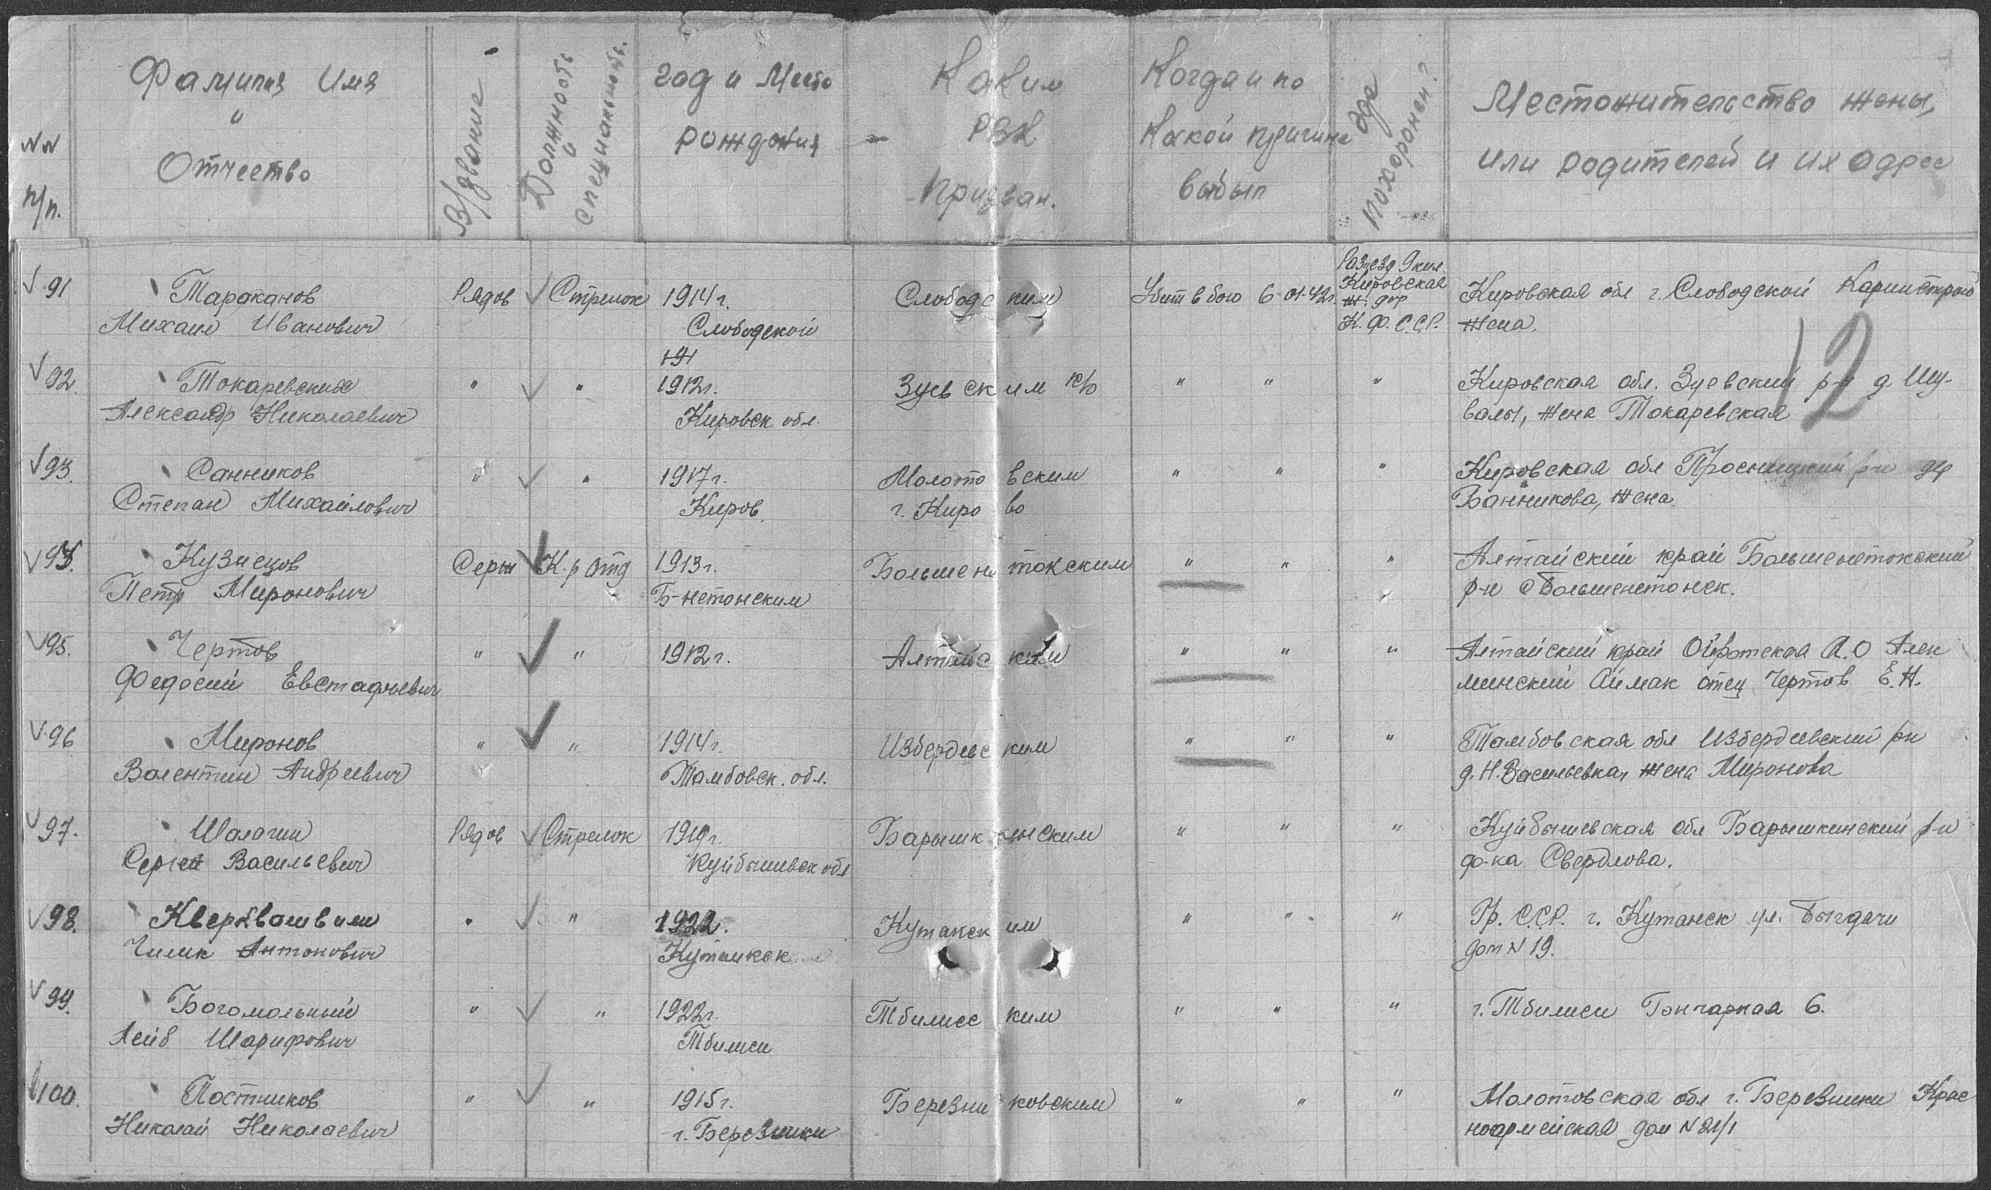 NN п/п.
Фамилия Имя и Отчество
В/звание
Должность и специальность.
год и Место рождения
Каким РВК призван.
Когда и по какой причине выбыл
где похоронен?
Местожительство жены, или родителей и их адрес
12
91 Тараканов Рядов Стрелок 1914 г. Слободским Убит в бою 6-01-42г. Разъезд 9 км. Кировская ж. дор К.Ф.С.С.Р. Кировская обл г. Слободской
Михаил Иванович Слободской жена.
191
92 Токаревских " " 1912 г. Зуевским " " " Кировская обл. Зуевский р-н д Шу-
Александр Николаевич Кировск обл. валы, жена Токаревская
93. Санников " " 1917 г. Молотовским " " " Кировская обл Просницкий р-н дер
Степан Михайлович Киров. г. Кирово Банникова, жена.
Кузнецов Сержн К-р отд 1913 г. " " " Алтайский край
Петр Миронович р-н
95. Чертов " " 1912 г. Алтайским " " " Алтайский край Ойротская А.О
Федосий Евстафьевич Аймак отец Чертов Е.Н.
96 Миронов " " 1914 г. Избердевским " " " Тамбовская обл Избердеевский р-н
Валентин Андреевич Тамбовск. обл. д. Н. Васильевка, жена Миронова
97. Шалагин Рядов Стрелок Барышкинским " " " Куйбышевская обл Барышкинский р-н
Сергей Васильевич Куйбышевск обл ф-ка Свердлова.
98. " " 1922. Кутаиским " " " Гр. С.С.Р. г. Кутаиск ул.
Антонович дом N 19.
99. Богомольный " " 1922 г. Тбилисским " " " г. Тбилиси Гончарная 6.
Лейб Шарифович Тбилиси
100. Постников " " 1915 г. Березниковским " " " Молотовская обл г. Березники Крас
Николай Николаевич г. Березники ноармейская дом